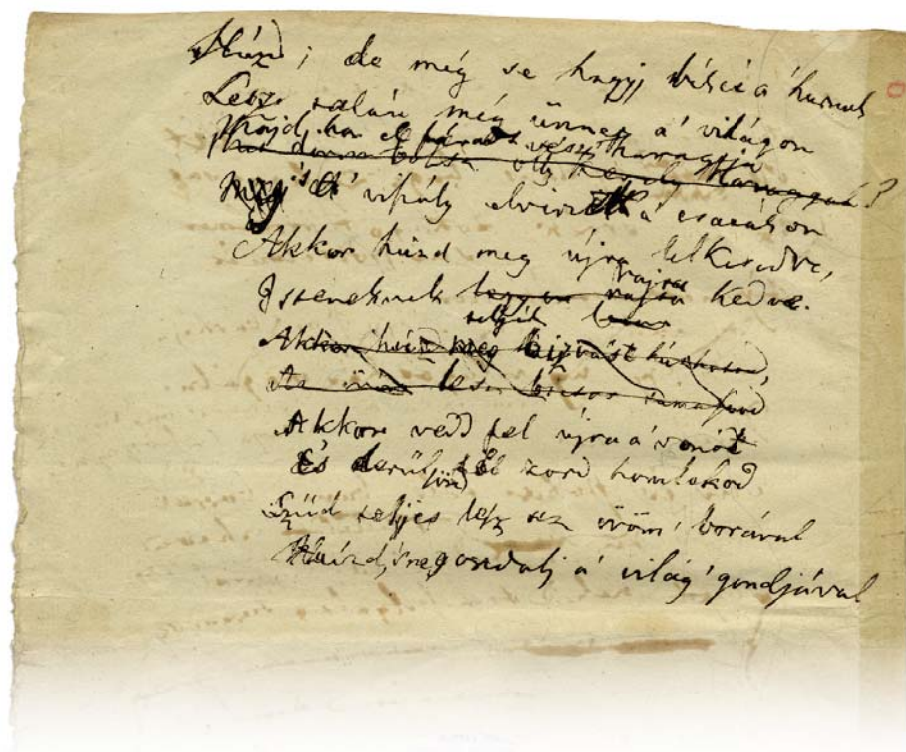 Húzd; de még se hagyj békét a' húrnak
Lesz talán még ünnep a' világon
Majd, ha el fárad a vész haragja
's a' viszály elvérzik a' csatákon
Akkor húzd meg újra lelkesedve,
rajta
Isteneknek legyen rajta kedve.
teljék benne
Akkor húzd meg bizvást
lesz
Akkor vedd fel újra a' vonót
És derűljön fel zord homlokod
Szűd teljes lesz az öröm' borával
Húzd, 's ne gondolj a' világ' gondjával